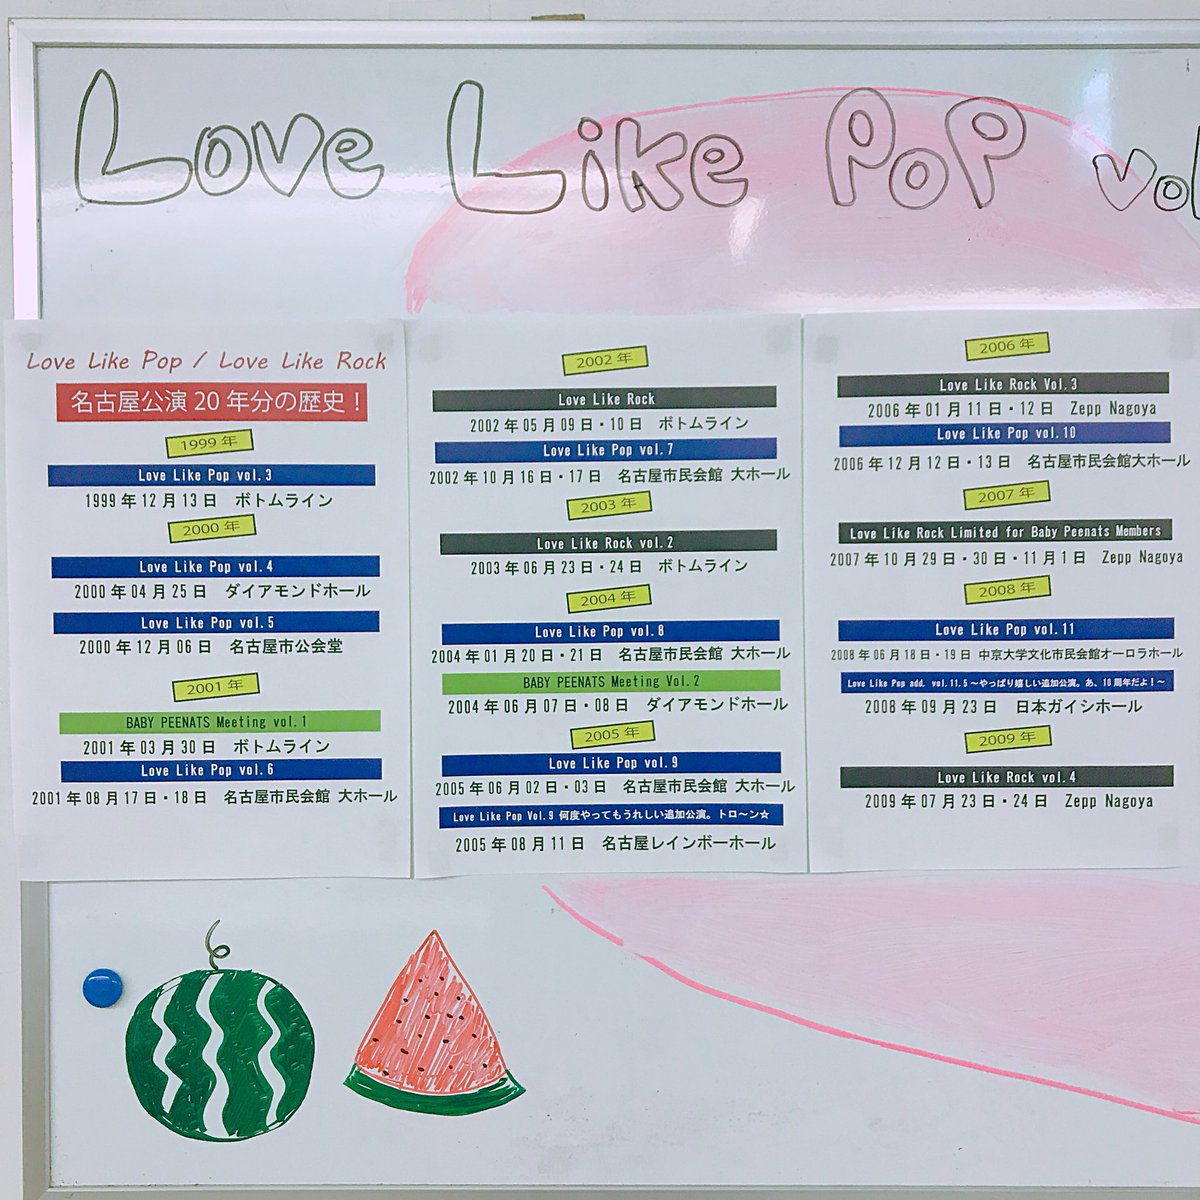 Love Like PoP vol
Love Like Pop / Love Like Rock
名古屋公演20年分の歴史！
1999年
Love Like Pop vol.3
1999年12月13日　ボトムライン
2000年
Love Like Pop vol.4
2000年04月25日　ダイアモンドホール
Love Like Pop vol.5
2000年12月06日　名古屋市公会堂
2001年
BABY PEENATS Meeting vol.1
2001年03月30日　ボトムライン
Love Like Pop vol.6
2001年08月17日・18日　名古屋市民会館 大ホール
2002年
Love Like Rock
2002年05月09日・10日　ボトムライン
Love Like Pop vol.7
2002年10月16日・17日　名古屋市民会館 大ホール
2003年
Love Like Rock vol.2
2003年06月23日・24日　ボトムライン
2004年
Love Like Pop vol.8
2004年01月20日・21日　名古屋市民会館 大ホール
BABY PEENATS Meeting Vol.2
2004年06月07日・08日　ダイアモンドホール
2005年
Love Like Pop vol.9
2005年06月02日・03日　名古屋市民会館 大ホール
Love Like Pop Vol.9 何度やってもうれしい追加公演。トロ〜ン☆
2005年08月11日　名古屋レインボーホール
2006年
Love Like Rock Vol.3
2006年01月11日・12日　Zepp Nagoya
Love Like Pop vol.10
2006年12月12日・13日　名古屋市民会館大ホール
2007年
Love Like Rock Limited for Baby Peenats Members
2007年10月29日・30日・11月1日　Zepp Nagoya
2008年
Love Like Pop vol.11
2008年06月18日・19日　中京大学文化市民会館オーロラホール
Love Like Pop add. vol.11.5〜やっぱり嬉しい追加公演。あ、10周年だよ！〜
2008年09月23日　日本ガイシホール
2009年
Love Like Rock vol.4
2009年07月23日・24日　Zepp Nagoya